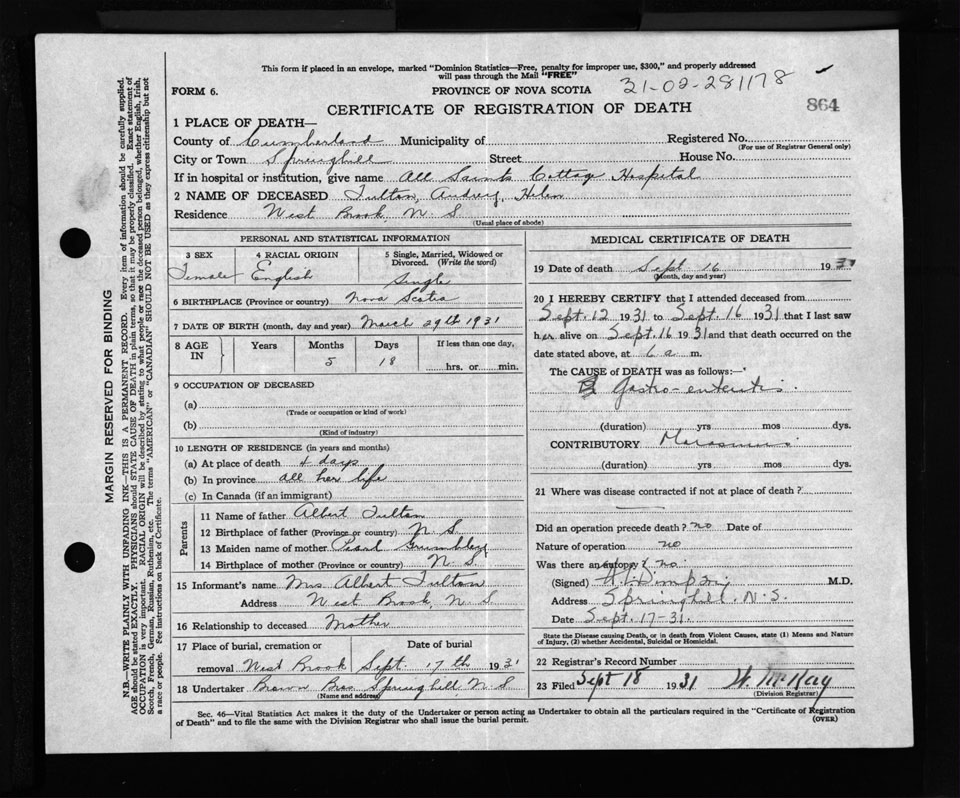 This form if placed in an envelope, marked "Dominion Statistics—Free, penalty for improper use, $300," and properly addressed
will pass through the Mail "FREE"
31-02-281178
FORM 6.
PROVINCE OF NOVA SCOTIA
864
CERTIFICATE OF REGISTRATION OF DEATH
1 PLACE OF DEATH—
County of Cumberland Municipality of
Registered No.
(For use of Registrar General only)
City or Town Springhill Street House No.
If in hospital or institution, give name All Saints Cottage Hospital
2 NAME OF DECEASED Fulton, Audrey, Helen
Residence West Brook N. S.
(Usual place of abode)
PERSONAL AND STATISTICAL INFORMATION
3 SEX
Female
4 RACIAL ORIGIN
English
5 Single, Married, Widowed or
Divorced. (Write the word)
Single
6 BIRTHPLACE (Province or country) Nova Scotia
7 DATE OF BIRTH (month, day and year) March 29th 1931
8 AGE
IN
Years
Months
5
Days
18
If less than one day,
hrs. or min.
9 OCCUPATION OF DECEASED
(a)
(Trade or occupation or kind of work)
(b)
(Kind of industry)
10 LENGTH OF RESIDENCE (in years and months)
(a) At place of death 4 days
(b) In province all her life
(c) In Canada (if an immigrant)
Parents
11 Name of father Albert Fulton
12 Birthplace of father (Province or country) N. S.
13 Maiden name of mother Pearl
14 Birthplace of mother (Province or country) N. S.
15 Informant's name Mrs. Albert Fulton
Address West Brook, N. S
16 Relationship to deceased Mother
17 Place of burial, cremation or Date of burial
removal West Brook Sept. 17th 1931
18 Undertaker Brown Bros Springhill N. S
(Name and address)
MEDICAL CERTIFICATE OF DEATH
19 Date of death Sept 16 1931
(Month, day and year)
20 I HEREBY CERTIFY that I attended deceased from
Sept. 12 1931 to Sept. 16 1931 that I last saw
her alive on Sept. 16 1931 and that death occurred on the
date stated above, at 6 a m.
The CAUSE of DEATH was as follows:—
Gastro-enteritis.
(duration) yrs mos dys.
CONTRIBUTORY Marasmus
(duration) yrs mos dys.
21 Where was disease contracted if not at place of death?
Did an operation precede death? no Date of
Nature of operation no
Was there an autopsy? no
(Signed) M.D.
Address Springhill. N.S.
Date Sept. 17-31.
State the Disease causing Death, or in death from Violent Causes, state (1) Means and Nature
of Injury, (2) whether Accidental, Suicidal or Homicidal.
22 Registrar's Record Number
23 Filed Sept 18 1931 W. McKay
(Division Registrar)
Sec. 46—Vital Statistics Act makes it the duty of the Undertaker or person acting as Undertaker to obtain all the particulars required in the "Certificate of Registration
of Death" and to file the same with the Division Registrar who shall issue the burial permit.
(OVER)
MARGIN RESERVED FOR BINDING
N.B.—WRITE PLAINLY WITH UNFADING INK—THIS IS A PERMANENT RECORD. Every item of information should be carefully supplied.
AGE should be stated EXACTLY. PHYSICIANS should STATE CAUSE OF DEATH in plain terms, so that it may be properly classified. Exact statement of
OCCUPATION is very important. RACIAL ORIGIN will be described by stating to what people or race the deceased person belonged, whether English, Irish,
Scotch, French, German, Russian, Ruthenian, etc. The terms "AMERICAN" or "CANADIAN" SHOULD NOT BE USED as they express citizenship but not
a race or people. Fee instructions on back of Certificate.